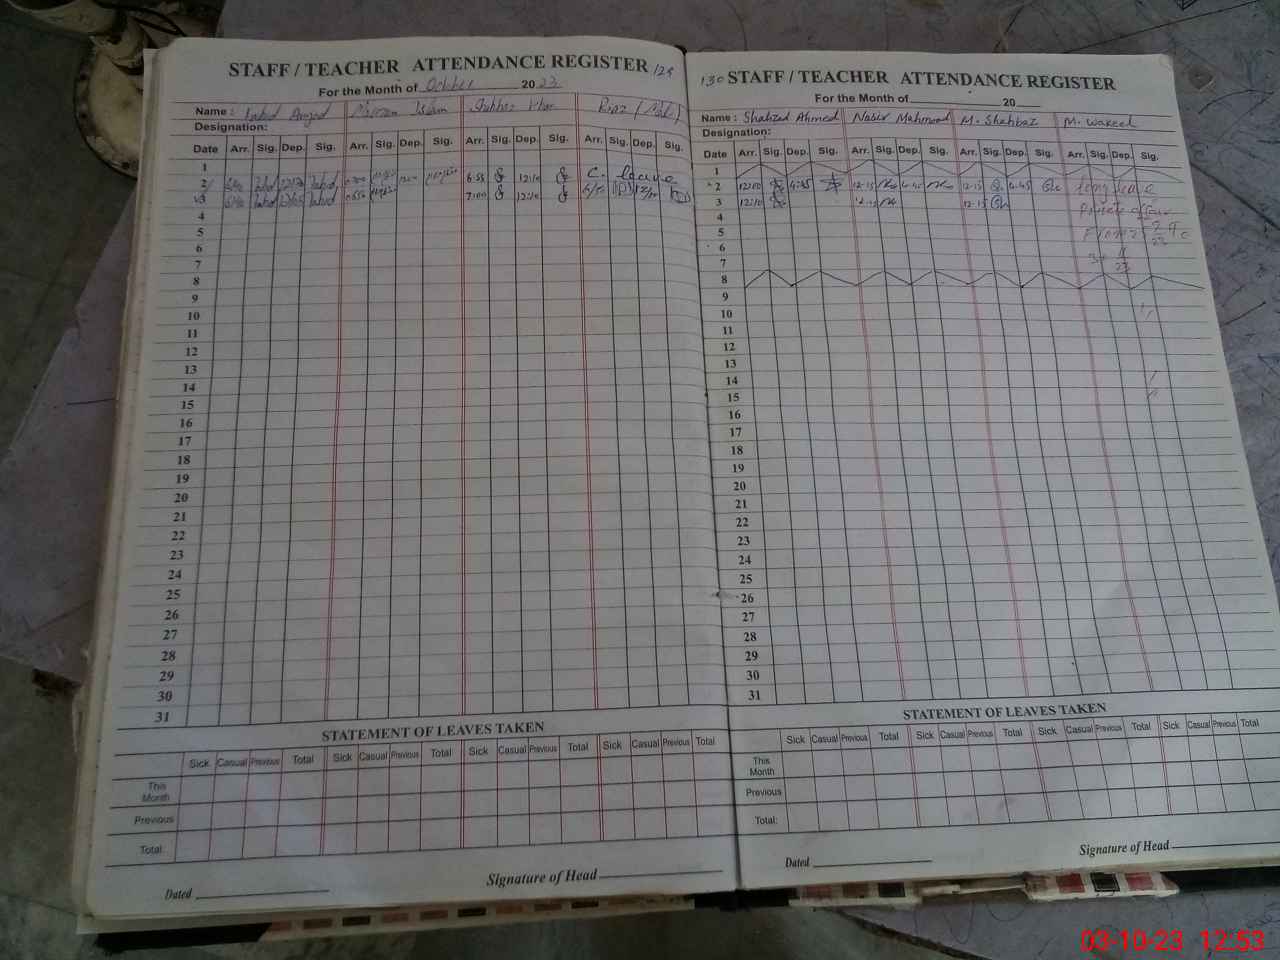 STAFF / TEACHER ATTENDANCE REGISTER 129
For the Month of October 20 23
Name : Islam Khan Riaz
Designation:
Date Arr. Sig. Dep. Sig. Arr. Sig. Dep. Sig. Arr. Sig. Dep. Sig. Arr. Sig. Dep. Sig.
1
2 6:55 12:10 C. leave
3 7:00 12:10
4
5
6
7
8
9
10
11
12
13
14
15
16
17
18
19
20
21
22
23
24
25
26
27
28
29
30
31
STATEMENT OF LEAVES TAKEN
Sick Casual Previous Total Sick Casual Previous Total Sick Casual Previous Total Sick Casual Previous Total
This Month
Previous
Total:
Dated Signature of Head
130 STAFF / TEACHER ATTENDANCE REGISTER
For the Month of 20
Name : Shahzad Ahmed Nasir Mahmood M. Shahbaz M. Waheed
Designation:
Date Arr. Sig. Dep. Sig. Arr. Sig. Dep. Sig. Arr. Sig. Dep. Sig. Arr. Sig. Dep. Sig.
1
2 12:10 4:45 12:15 4:45 12:15 4:45 long leave
3 12:10 12:15 12:15
4
5
6
7
8
9
10
11
12
13
14
15
16
17
18
19
20
21
22
23
24
25
26
27
28
29
30
31
STATEMENT OF LEAVES TAKEN
Sick Casual Previous Total Sick Casual Previous Total Sick Casual Previous Total Sick Casual Previous Total
This Month
Previous
Total:
Dated Signature of Head
03-10-23 12:53